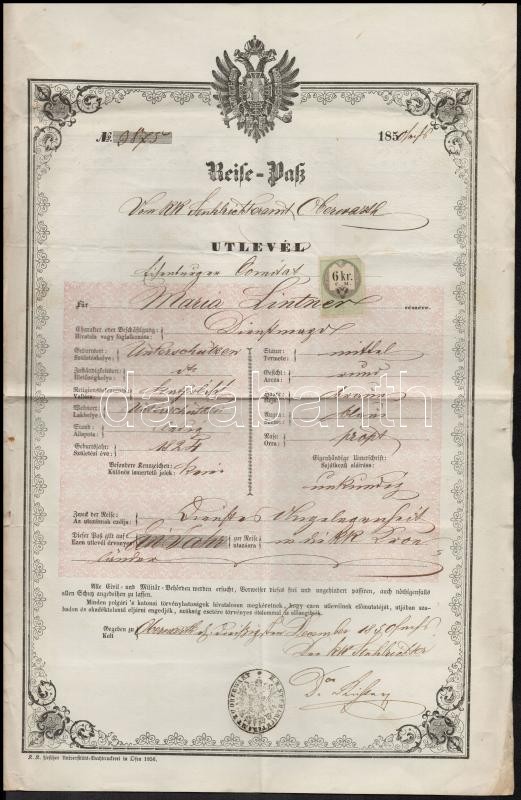 № 3875 185
Reise-Paß
Vom KK Stuhlrichteramt Oberwarth
UTLEVÉL
Eisenburger Comitat
6 kr.
C. M.
Für Maria Lintner részére.
Charakter oder Beschäftigung: Hivatala vagy foglalkozása: Dienstmagd
Geburtsort: Születéshelye: Unterschützen
Statur: Termete: mittel
Zuständigkeitsort: Illetőséghelye: dto
Gesicht: Arcza: rund
Religion: Vallása:
Haare: braun
Wohnort: Lakhelye: Unterschützen
Augen: blau
Stand: Állapota: ledig
Nase: Orra: propt
Geburtsjahr: Születési éve: 1824
Eigenhändige Unterschrift: Sajátkezű aláirása:
Besondere Kennzeichen: Különös ismertető jelek: keine
unkundig
Zweck der Reise: Az utazásnak czélja: Dienstes Angelegenheit
Dieser Paß gilt auf Ezen utlevél érvényes ein Jahr zur Reise utazásra in die KK Kron
länder
Alle Civil- und Militär-Behörden werden ersucht, Vorweiser dieses frei und ungehindert passiren, auch nöthigenfalls
allen Schutz angedeihen zu lassen.
Minden polgári 's katonai törvényhatóságok hivatalosan megkéretnek, hogy ezen utlevélnek előmutatóját, utjában sza-
badon és akadálytalanul elmenni engedjék, szükség esetére törvényes oltalommal is ellátnák.
Gegeben zu Kelt Oberwarth Dezember 185
Der KK Stuhlrichter
K. K. ofner Universitäts-Buchdruckerei in Ofen 1856.
darabanth